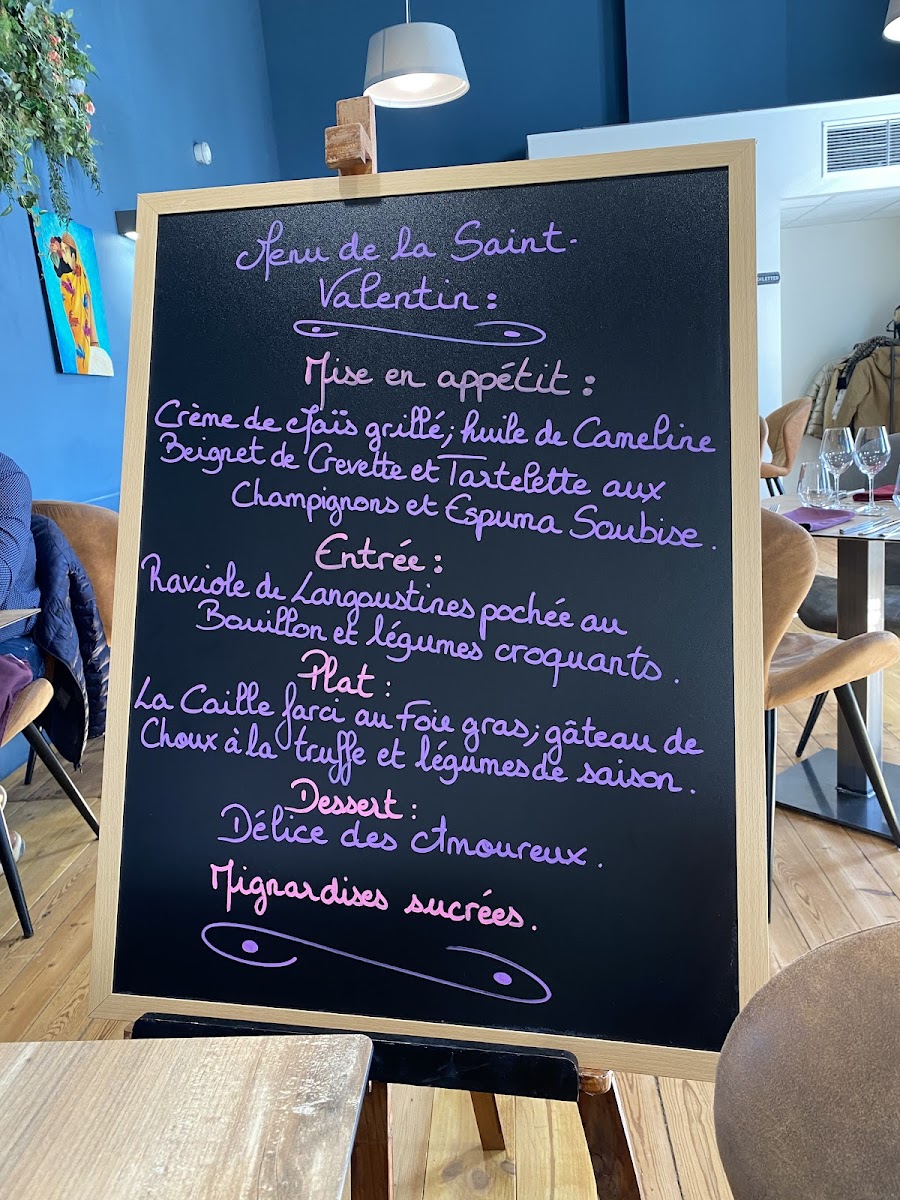 Menu de la Saint-
Valentin :
Mise en appétit :
Crème de Maïs grillé, huile de Cameline
Beignet de Crevette et Tartelette aux
Champignons et Espuma Soubise.
Entrée :
Raviole de Langoustines pochée au
Bouillon et légumes croquants.
Plat :
La Caille farci au Foie gras, gâteau de
Choux à la truffe et légumes de saison.
Dessert :
Délice des Amoureux.
Mignardises sucrées.